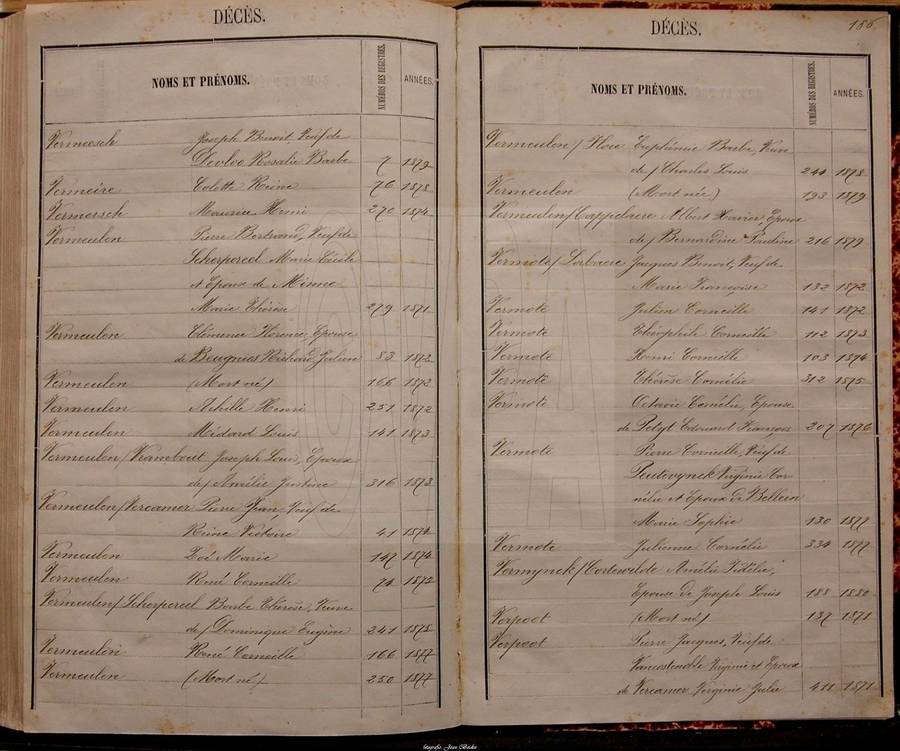 DÉCÈS.
NOMS ET PRÉNOMS.
NUMÉROS DES REGISTRES.
ANNÉES.
Vermeesch Joseph Benoit, Veuf de
Devloo Rosalie Barbe 7 1879
Vermeire Colette Reine 76 1878
Vermersch Maurice Henri 270 1874
Vermeulen Pierre Bertrand, Veuf de
Scherpereel Marie Cécile
et Epoux de Minne
Marie Thérèse 279 1871
Vermeulen Clémence Florence, Epouse
de Beugnies Richard Julien 83 1872
Vermeulen (Mort né) 166 1872
Vermeulen Achille Henri 251 1872
Vermeulen Médard Louis 141 1873
Vermeulen/Vrambout Joseph Louis, Epoux
de/ Amélie Justine 316 1873
Vermeulen/Vercamer Pierre Jean, Veuf de
Reine Victoire 41 1874
Vermeulen Zoé Marie 147 1874
Vermeulen René Corneille 74 1872
Vermeulen/Scherpereel Barbe Thérèse, Veuve
de/ Dominique Eugène 241 1875
Vermeulen René Corneille 166 1877
Vermeulen (Mort né) 250 1877
DÉCÈS.
186
NOMS ET PRÉNOMS.
NUMÉROS DES REGISTRES.
ANNÉES.
Vermeulen/Houe Euphémie Barbe, Veuve
de/ Charles Louis 244 1878
Vermeulen (Mort née) 193 1879
Vermeulen/Cappelaere Albert Xavier, Epoux
de/ Bernardine Pauline 216 1879
Vermote/Labaere Jacques Benoit, Veuf de
Marie Françoise 132 1872
Vermote Julien Corneille 141 1872
Vermote Théophile Corneille 112 1873
Vermote Henri Corneille 103 1874
Vermote Thérèse Cornélie 312 1875
Vermote Octavie Cornélie, Epouse
de Pelgt Edouard François 207 1876
Vermote Pierre Corneille, Veuf de
Virginie Cor-
nélie et Epoux de Bellem
Marie Sophie 130 1877
Vermote Julienne Cornélie 334 1877
Vermynck/Cortewilde Amélie Fidélie,
Epouse de Joseph Louis 188 1880
Verpoot (Mort né) 137 1871
Verpoot Pierre Jacques, Veuf de
Virginie et Epoux
de Vercamer Virginie Julie 411 1871
fotografie Jean Beake